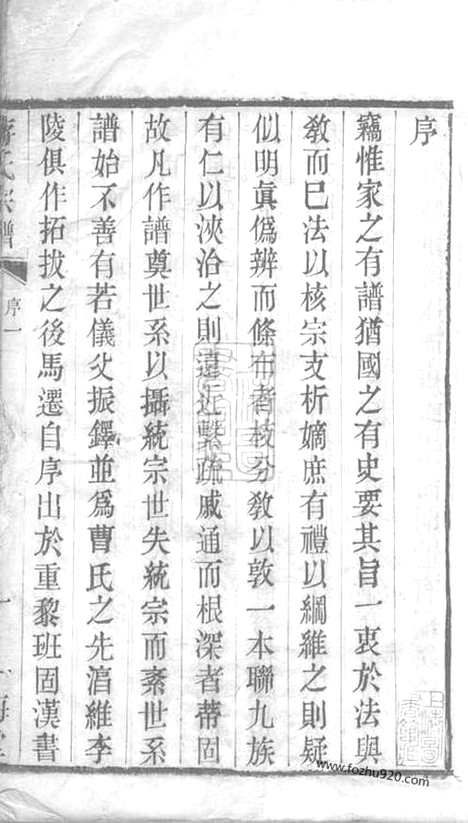 序
竊惟家之有譜猶國之有史要其旨一衷於法與
敎而已法以核宗支析嫡庶有禮以綱維之則疑
似明眞僞辨而條布者枝分敎以敦一本聯九族
有仁以浹洽之則遠近繫疏戚通而根深者蒂固
故凡作譜奠世系以攝統宗世失統宗而紊世系
譜始不善有若儀父振鐸並爲曹氏之先湻維李
陵俱作拓拔之後馬遷自序出於重黎班固漢書
氏宗譜
序一
www.fozhu920.com